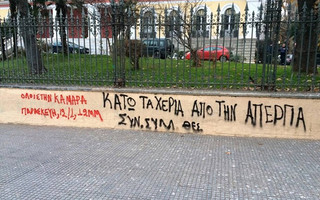 ΟΛΟΙ ΣΤΗΝ ΚΑΜΑΡΑ
ΠΑΡΑΣΚΕΥΗ, 12/1, 12ΜΜ
ΚΑΤΩ ΤΑ ΧΕΡΙΑ ΑΠΟ ΤΗΝ ΑΠΕΡΓΙΑ
ΣΥΝ.ΣΥΜ ΘΕΣ